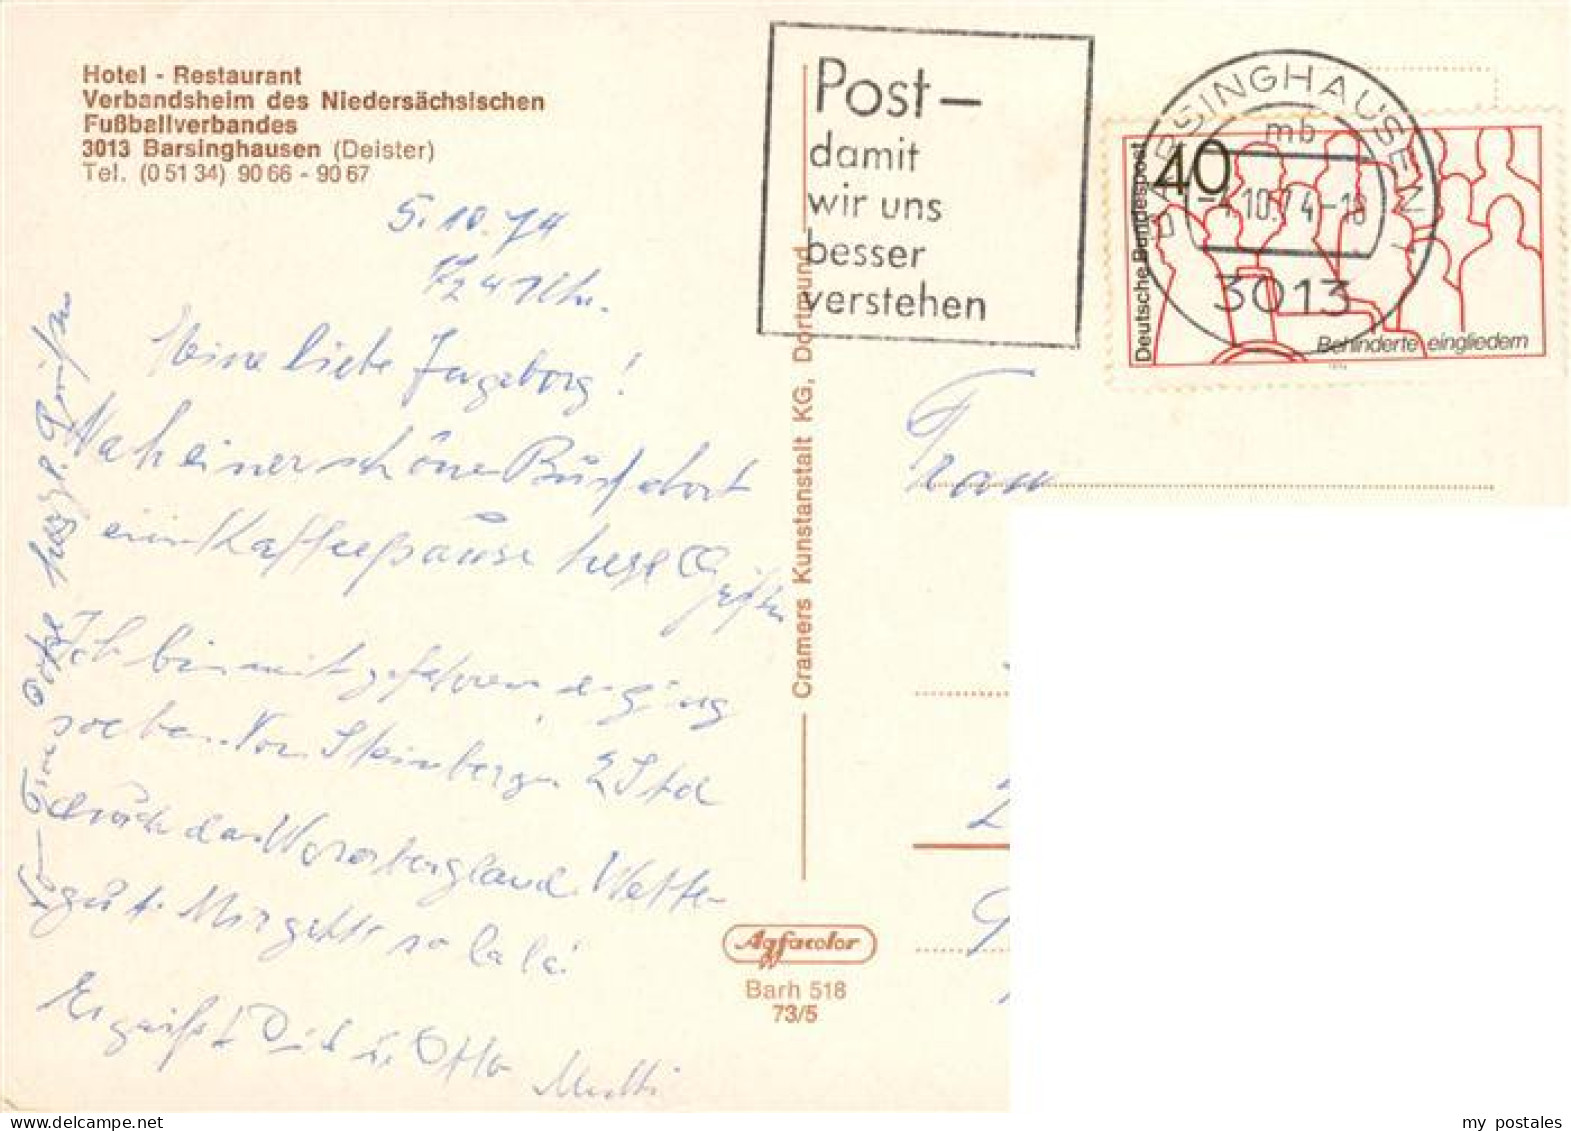 Hotel - Restaurant
Verbandsheim des Niedersächsischen
Fußballverbandes
3013 Barsinghausen (Deister)
Tel. (0 51 34) 90 66 - 90 67
5.10.74
1/2 4 Uhr.
Meine liebe Ingeborg!
Nach einer schönen dort
eine Kaffeepause
Ich bin mitgefahren, es ging
soeben. Von Steinbergen 2 Std
durch das Weserbergland. Wetter
gut. Mir geht's so la la!
Es grüßt Dich u. Otto Mutti
Post –
damit
wir uns
besser
verstehen
BARSINGHAUSEN 1
mb
-4.10.74-18
3013
40
Deutsche Bundespost
Behinderte eingliedern
1974
Frau
Cramers Kunstanstalt KG, Dortmund
Agfacolor
Barh 518
73/5
my postales